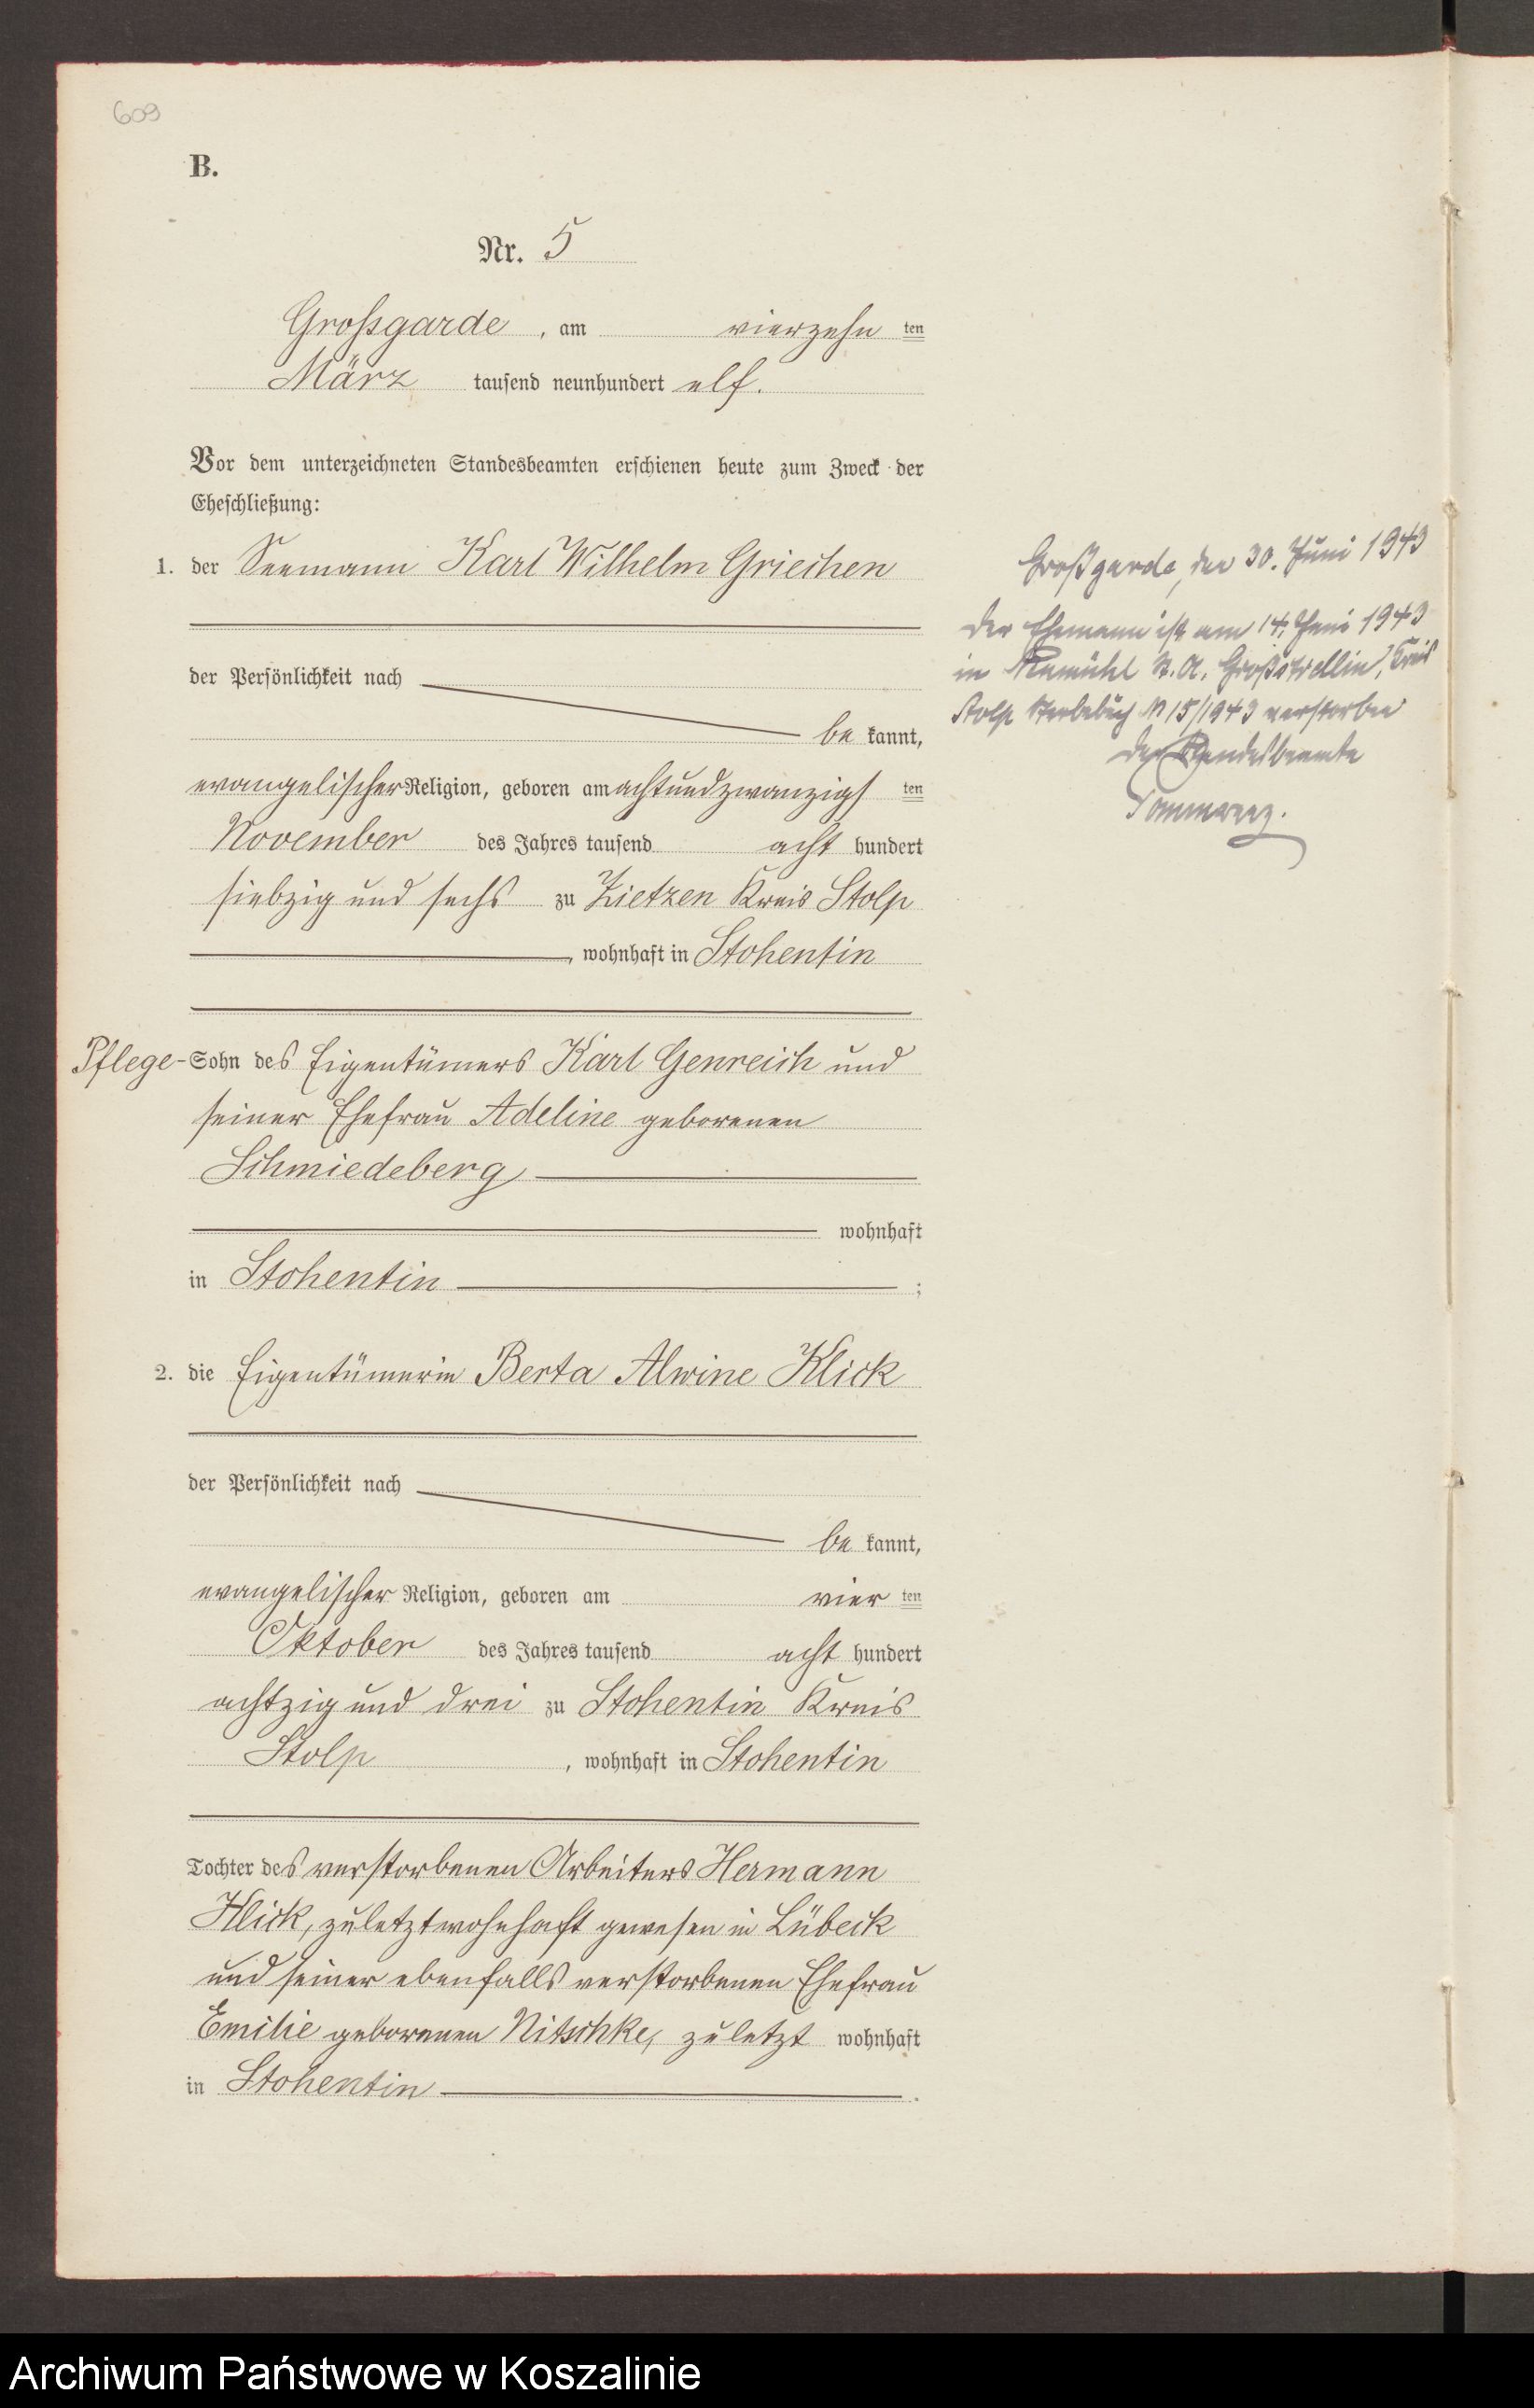 609
B.
Nr. 5
Grossgarde, am vierzehn ten
März tausend neunhundert elf.
Vor dem unterzeichneten Standesbeamten erschienen heute zum Zweck der
Eheschließung:
1. der Seemann Karl Wilhelm Griechen
der Persönlichkeit nach
be kannt,
evangelischer Religion, geboren am achtundzwanzigs ten
November des Jahres tausend acht hundert
siebzig und sechs zu Zietzen Kreis Stolp
, wohnhaft in Stohentin
Pflege-Sohn des Eigentümers Karl Genreich und
seiner Ehefrau Adeline geborenen
Schmiedeberg
wohnhaft
in Stohentin ;
2. die Eigentümerin Berta Alwine Klick
der Persönlichkeit nach
be kannt,
evangelischer Religion, geboren am vier ten
Oktober des Jahres tausend acht hundert
achtzig und drei zu Stohentin Kreis
Stolp, wohnhaft in Stohentin
Tochter des verstorbenen Arbeiters Hermann
Klick, zuletzt wohnhaft gewesen in Lübeck
und seiner ebenfalls verstorbenen Ehefrau
Emilie geborenen Nitschke, zuletzt wohnhaft
in Stohentin .
Großgarde, den 30. Juni 1943
Der Ehemann ist am 14. Juni 1943
in St. A. Kreis
Stolp Sterbebuch N 15/1943 verstorben
Der Standesbeamte
Archiwum Państwowe w Koszalinie